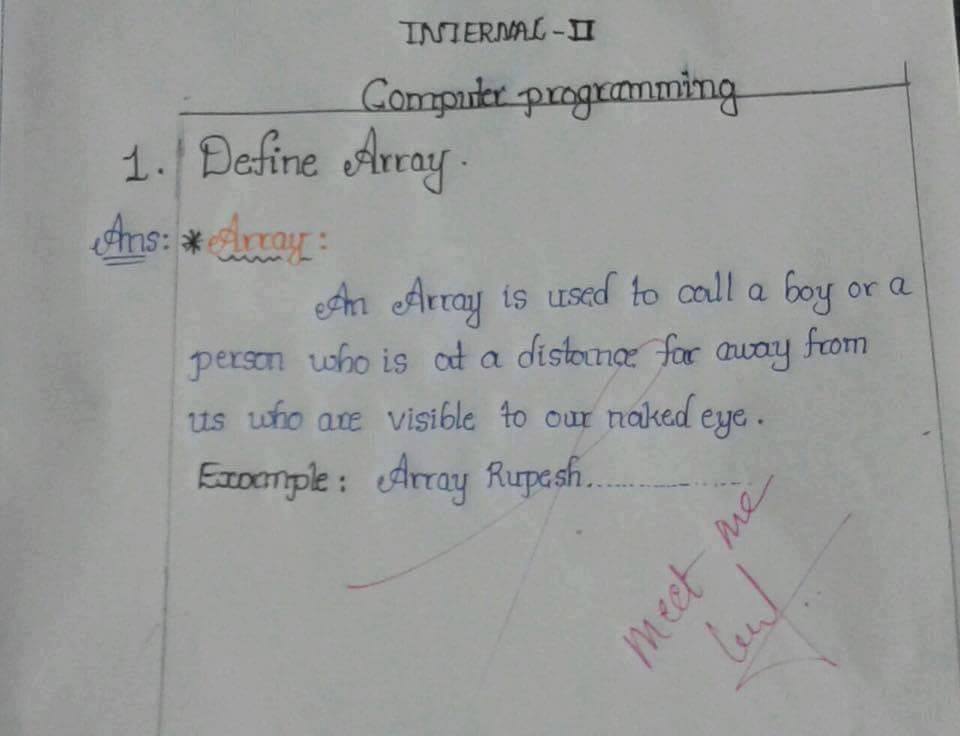 INTERNAL-II
Computer programming
1. Define Array.
Ans: * Array:
An Array is used to call a boy or a
person who is at a distance far away from
us who are visible to our naked eye.
Example: Array Rupesh..................
Meet me